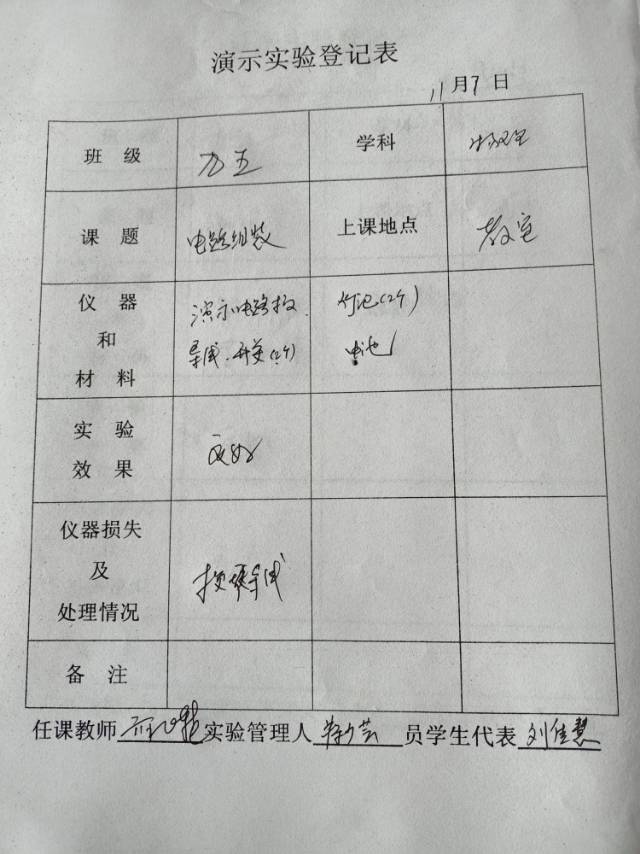 演示实验登记表
11月7日
班 级 九五 学科 物理
课 题 电路组装 上课地点 教室
仪 器 演示电路板、 灯泡(2个)
和 导线、开关(2个) 电池
材 料
实 验
效 果 良好
仪器损失
及 导线
处理情况
备 注
任课教师 实验管理人 员学生代表 刘佳慧